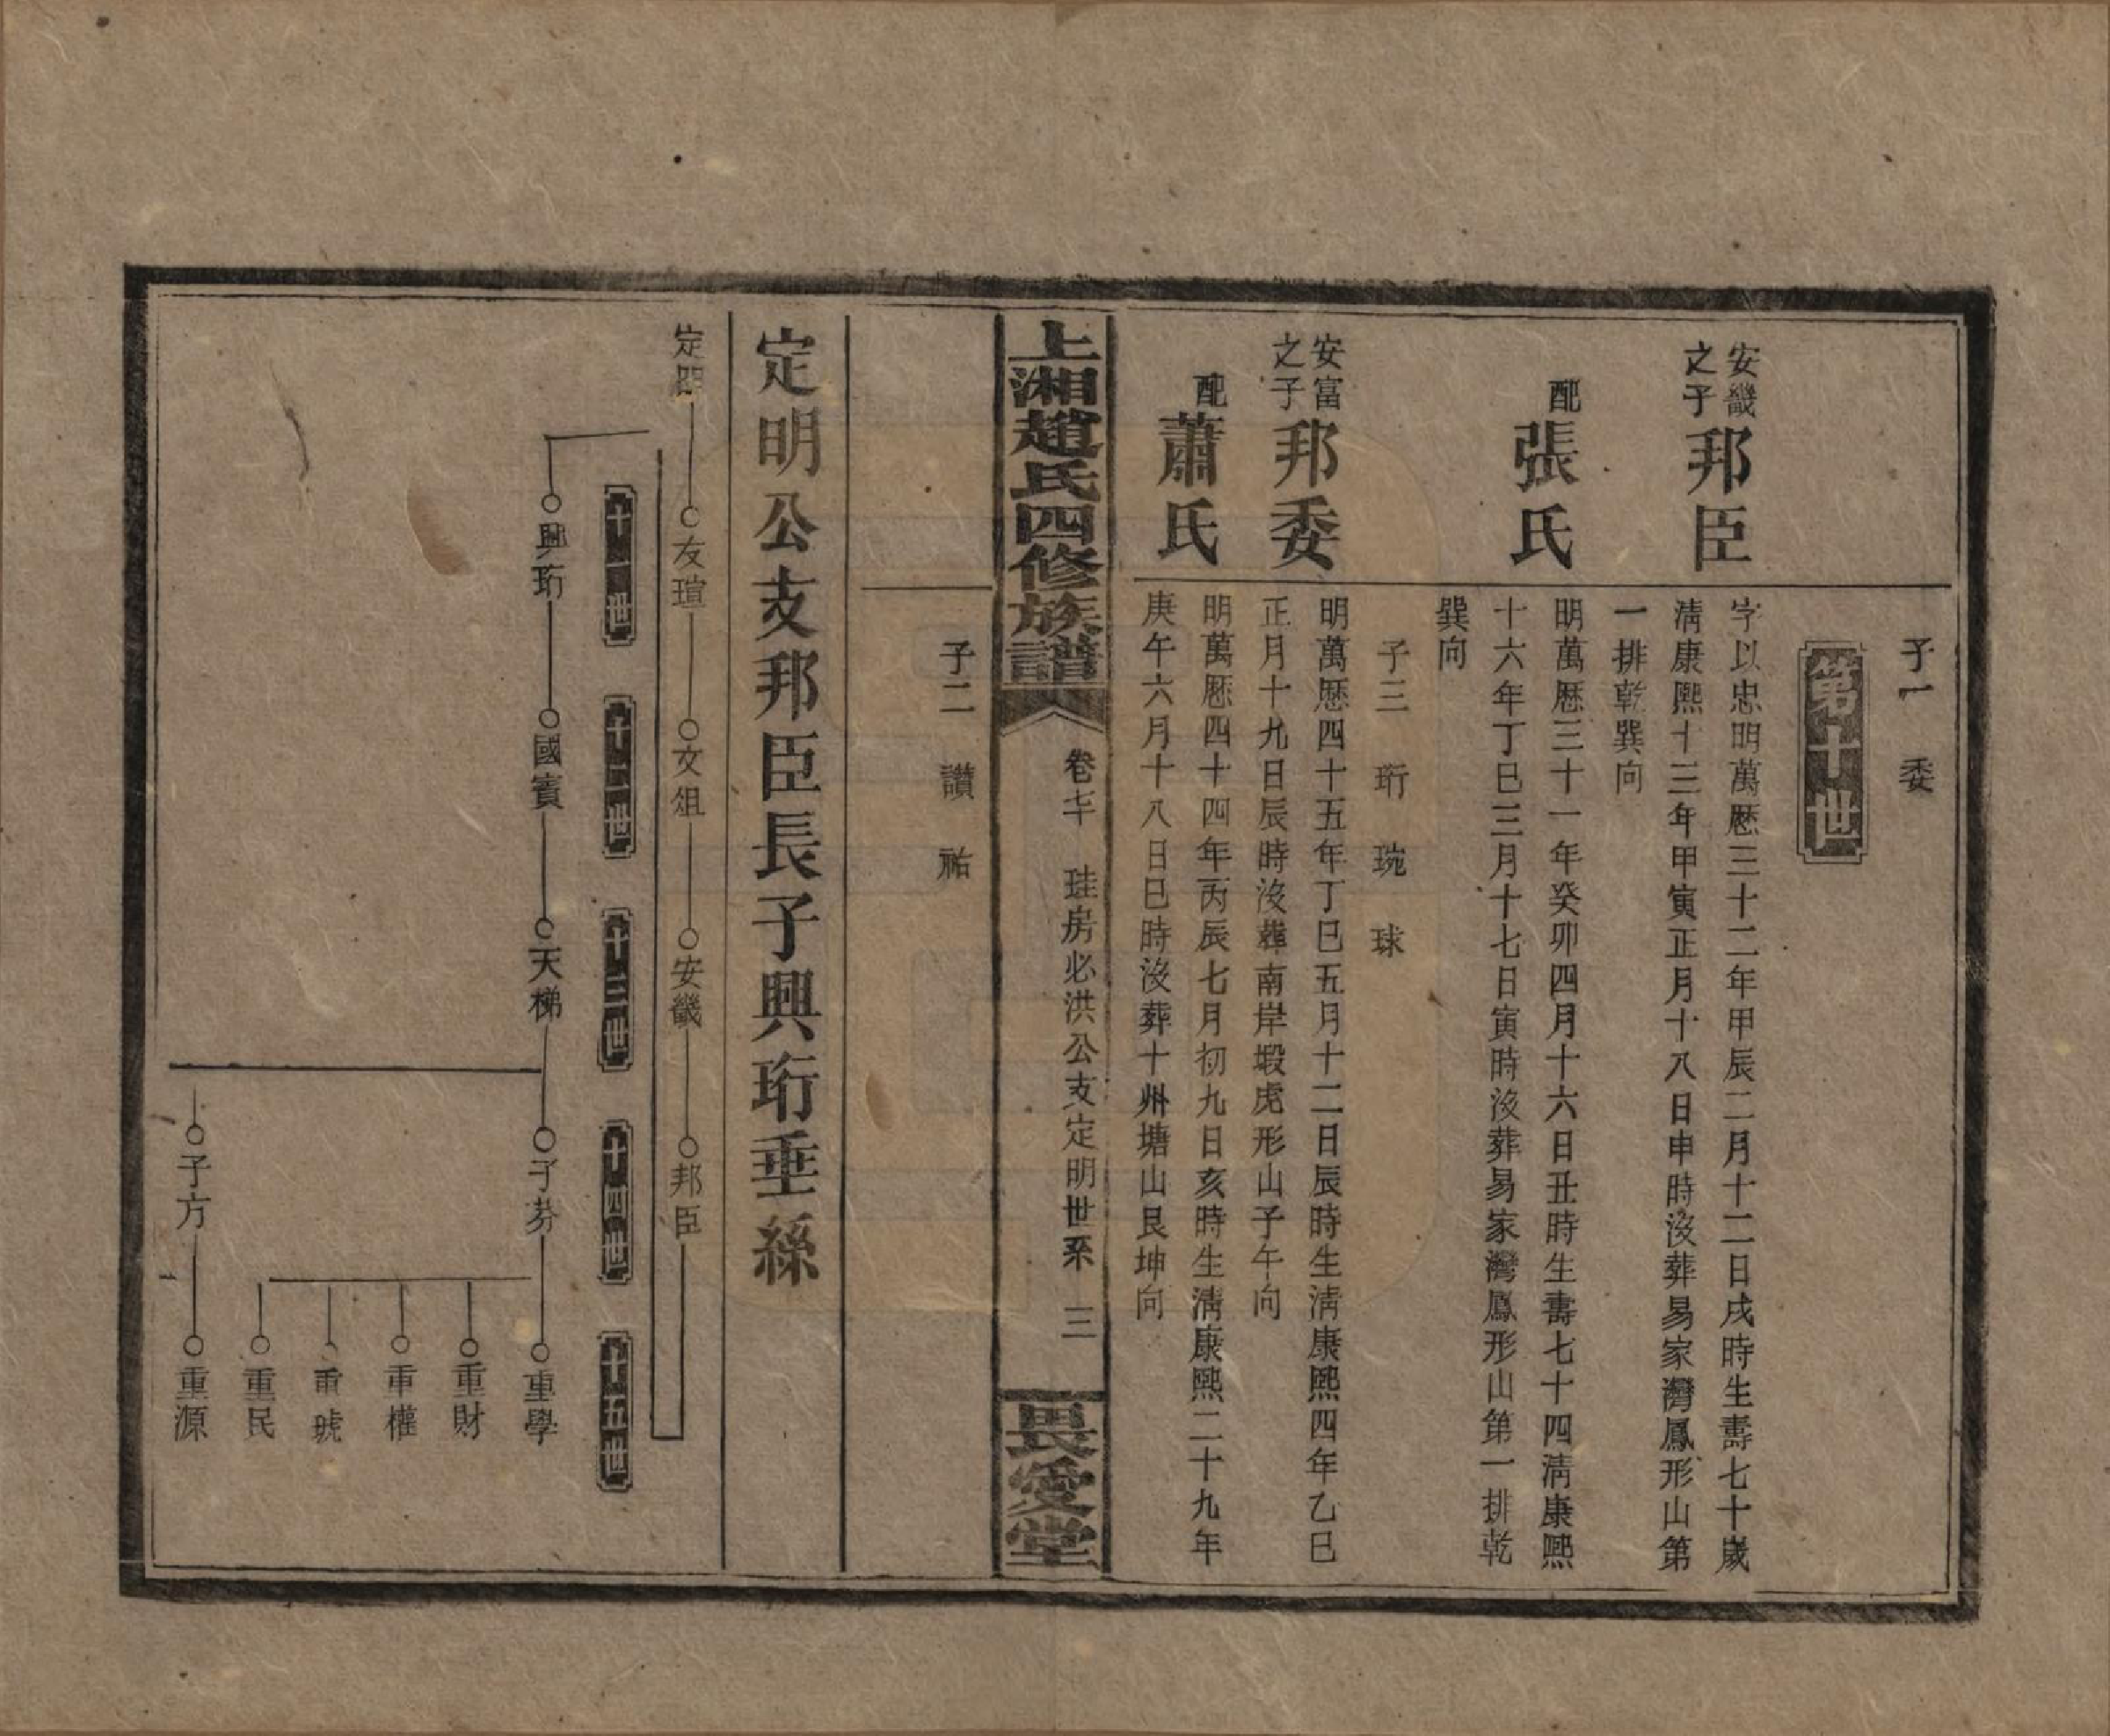 子一　委
第十世
安畿之子 邦臣
字以忠明萬厯三十二年甲辰二月十二日戌時生壽七十歲
清康熙十三年甲寅正月十八日申時沒葬易家灣鳳形山第
一排乾巽向
配 張氏
明萬厯三十一年癸卯四月十六日丑時生壽七十四清康熙
十六年丁巳三月十七日寅時沒葬易家灣鳳形山第一排乾
巽向
子三　珩　琬　球
安富之子 邦委
明萬厯四十五年丁巳五月十二日辰時生清康熙四年乙巳
正月十九日辰時沒葬南岸塅虎形山子午向
配 蕭氏
明萬厯四十四年丙辰七月初九日亥時生清康熙二十九年
庚午六月十八日巳時沒葬十州塘山艮坤向
上湘趙氏四修族譜
卷七　珪房必洪公支定明世系　三
畏愛堂
子二　讚　祐
定明公支邦臣長子興珩垂絲
定明　友瑄　文俎　安畿　邦臣
十一世　十二世　十三世　十四世　十五世
興珩　國賓　天梯　子芴　重學
重財
重權
重琥
重民
子方　重源